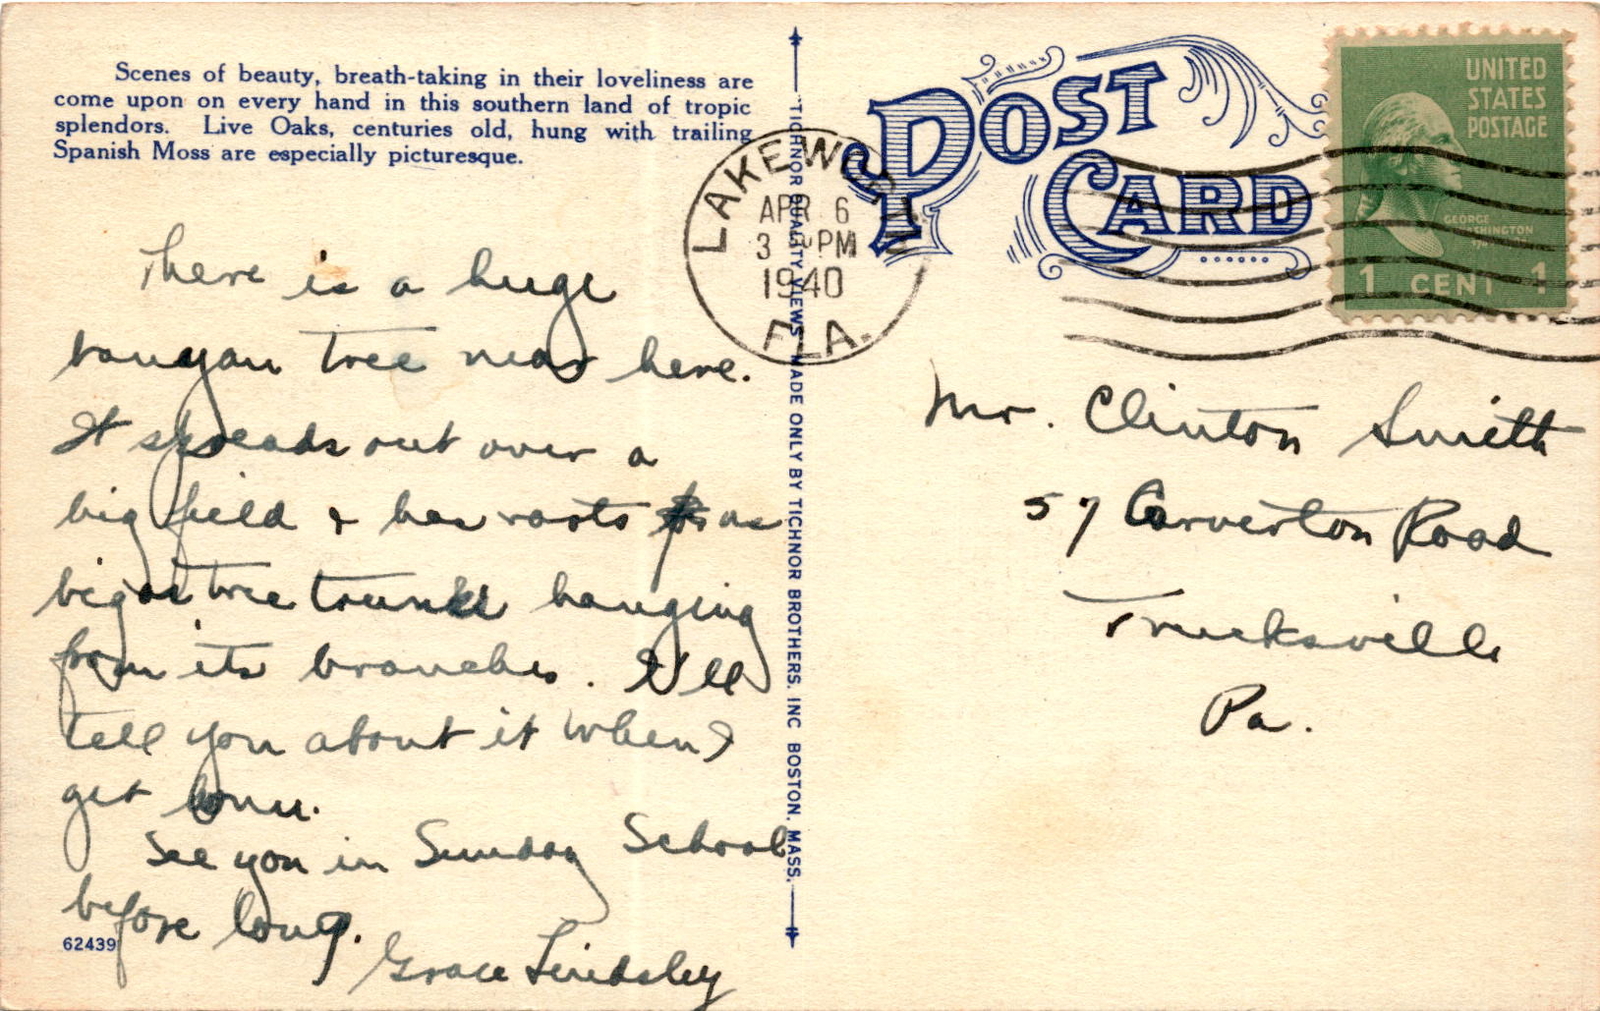 Scenes of beauty, breath-taking in their loveliness are
come upon on every hand in this southern land of tropic
splendors. Live Oaks, centuries old, hung with trailing
Spanish Moss are especially picturesque.
There is a huge
banyan tree near here.
It spreads out over a
big field & has roots as
big as tree trunks hanging
from its branches. I'll
tell you about it when I
get home.
See you in Sunday School
before long.
Grace Lindsley
62439
TICHNOR QUALITY VIEWS MADE ONLY BY TICHNOR BROTHERS. INC BOSTON. MASS.
POST
CARD
LAKE WORTH
APR 6
3 PM
1940
FLA.
UNITED
STATES
POSTAGE
GEORGE
WASHINGTON
1 CENT 1
Mr. Clinton Smith
57 Carverton Road
Trucksville
Pa.